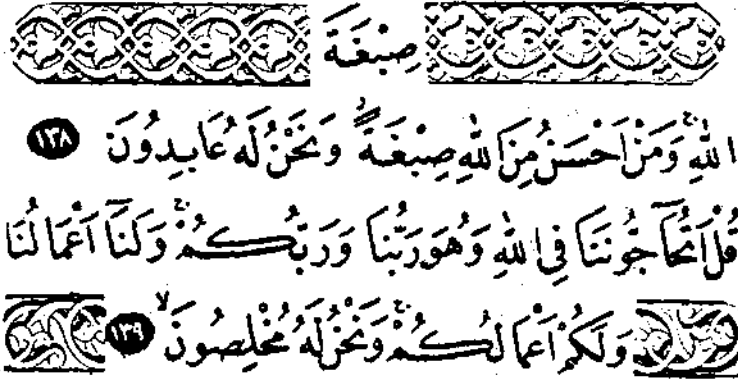 صِبْغَةَ
اللّٰهِۚ وَمَنْ اَحْسَنُ مِنَ اللّٰهِ صِبْغَةًۘ وَنَحْنُ لَهُ عَابِدُونَ ١٣٨
قُلْ اَتُحَٓاجُّونَنَا فِي اللّٰهِ وَهُوَ رَبُّنَا وَرَبُّكُمْۚ وَلَنَٓا اَعْمَالُنَا
وَلَكُمْ اَعْمَالُكُمْۚ وَنَحْنُ لَهُ مُخْلِصُونَۙ ١٣٩